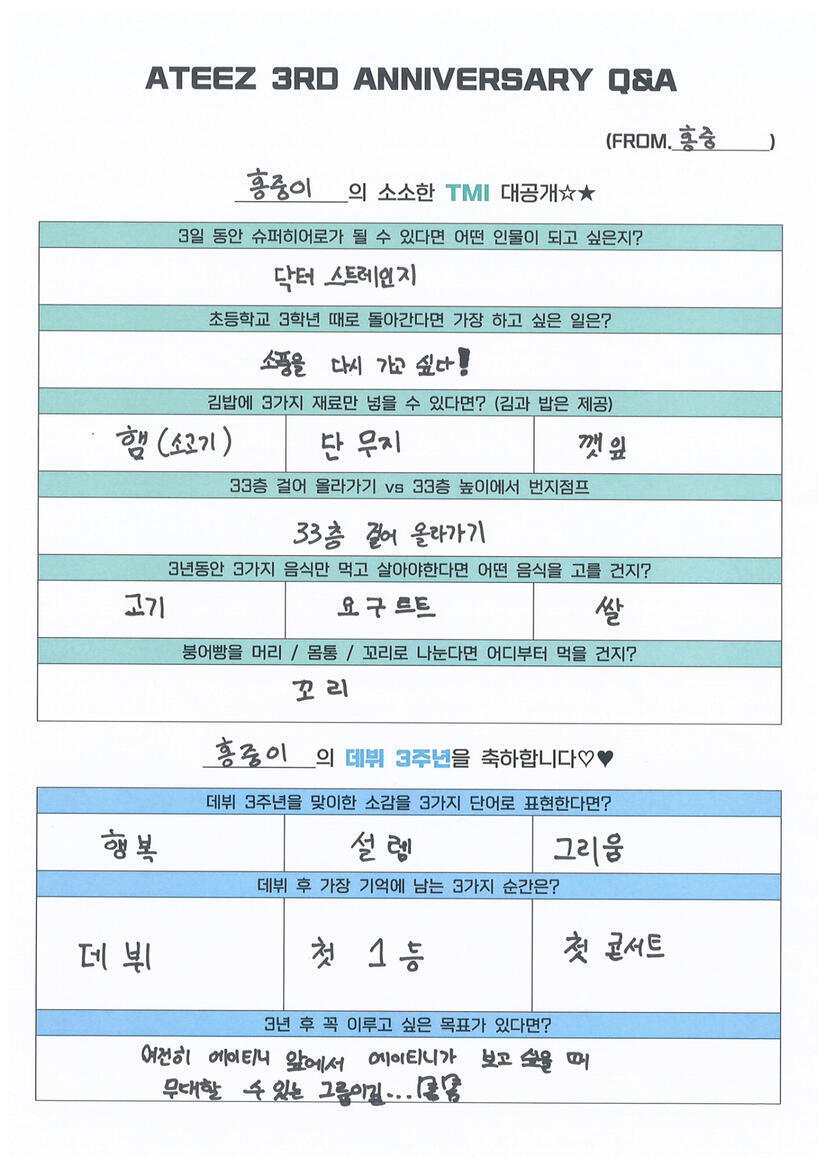 ATEEZ 3RD ANNIVERSARY Q&A
(FROM. 홍중 )
홍중이 의 소소한 TMI 대공개☆★
3일 동안 슈퍼히어로가 될 수 있다면 어떤 인물이 되고 싶은지?
닥터 스트레인지
초등학교 3학년 때로 돌아간다면 가장 하고 싶은 일은?
소풍을 다시 가고 싶다!
김밥에 3가지 재료만 넣을 수 있다면? (김과 밥은 제공)
햄 (소고기) 단무지 깻잎
33층 걸어 올라가기 vs 33층 높이에서 번지점프
33층 걸어 올라가기
3년동안 3가지 음식만 먹고 살아야한다면 어떤 음식을 고를 건지?
고기 요구르트 쌀
붕어빵을 머리 / 몸통 / 꼬리로 나눈다면 어디부터 먹을 건지?
꼬리
홍중이 의 데뷔 3주년을 축하합니다♡♥
데뷔 3주년을 맞이한 소감을 3가지 단어로 표현한다면?
행복 설렘 그리움
데뷔 후 가장 기억에 남는 3가지 순간은?
데뷔 첫 1등 첫 콘서트
3년 후 꼭 이루고 싶은 목표가 있다면?
여전히 에이티니 앞에서 에이티니가 보고 싶을 때
무대할 수 있는 그룹이길...